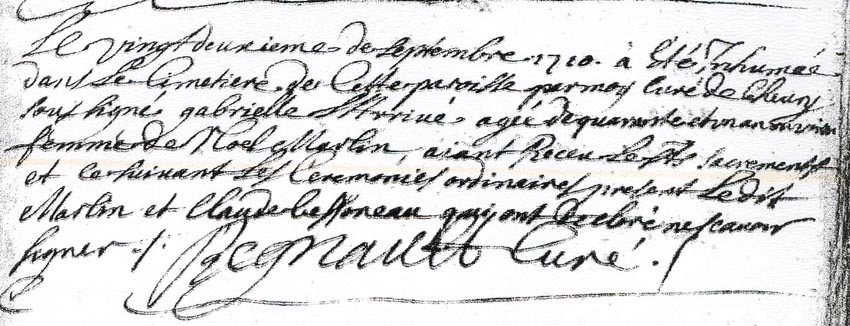 Le vingt deuxieme de Septembre 1710. a Eté Inhumeé
dans Le Cimetiere de Cette paroisse par moy Curé de
soussigné gabrielle agée de quarante et un an ou environ
femme de Noel Martin, aiant Receu Les Sts sacrements
et ce suivant Les Ceremonies ordinaires present Ledit
Martin et Claude qui ont declaré ne scavoir
signer ./.
Regnault Curé ./